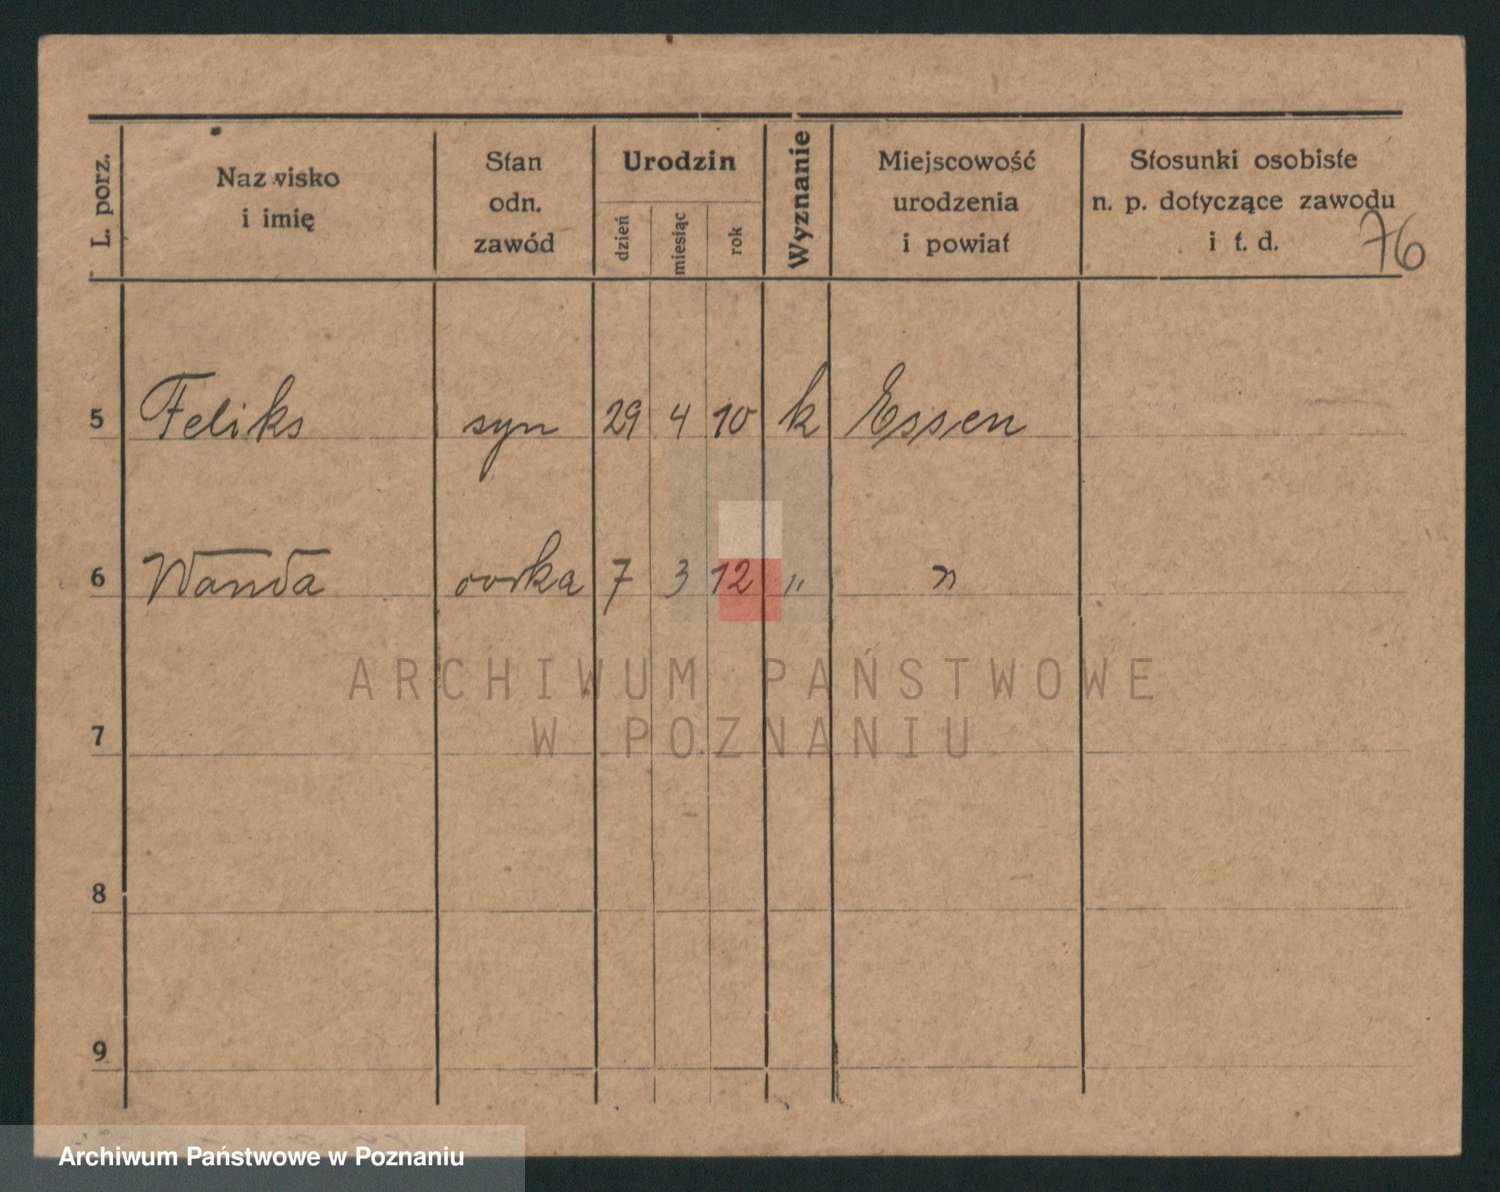 L. porz.
Nazwisko
i imię
Stan
odn.
zawód
Urodzin
dzień
miesiąc
rok
Wyznanie
Miejscowość
urodzenia
i powiat
Stosunki osobiste
n. p. dotyczące zawodu
i t. d.
76
5 Feliks syn 29 4 10 k Essen
6 Wanda córka 7 3 12 " "
ARCHIWUM PAŃSTWOWE
W POZNANIU
7
8
9
Archiwum Państwowe w Poznaniu